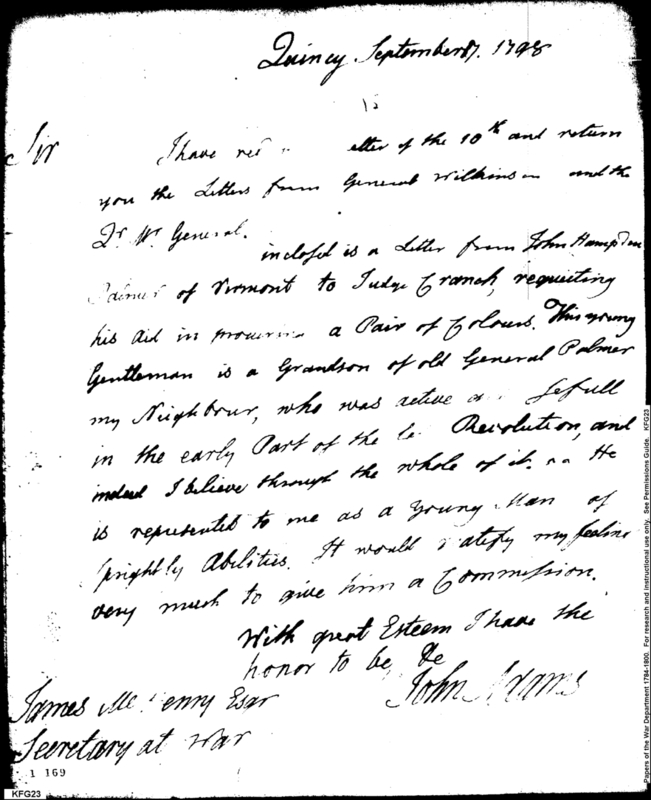 Quincy September 17. 1798
Sir
I have rec etter of the 10th and return
you the Letters from General Wilkinson and the
Qr. Mr. General.
inclosed is a Letter from John Hampden
Palmer of Vermont to Judge Cranch, requesting
his Aid in procuring a Pair of Colours. This young
Gentleman is a Grandson of old General Palmer
my Neighbour, who was active a sefull
in the early Part of the la Revolution, and
indeed I believe through the whole of it. He
is represented to me as a young Man of
sprightly Abilities. It would ratify my feeling
very much to give him a Commission.
With great Esteem I have the
honor to be, &c
John Adams
James McHenry Esqr
Secretary at War
1 169
KFG23
Papers of the War Department 1784-1800. For research and instructional use only. See Permissions Guide. KFG23